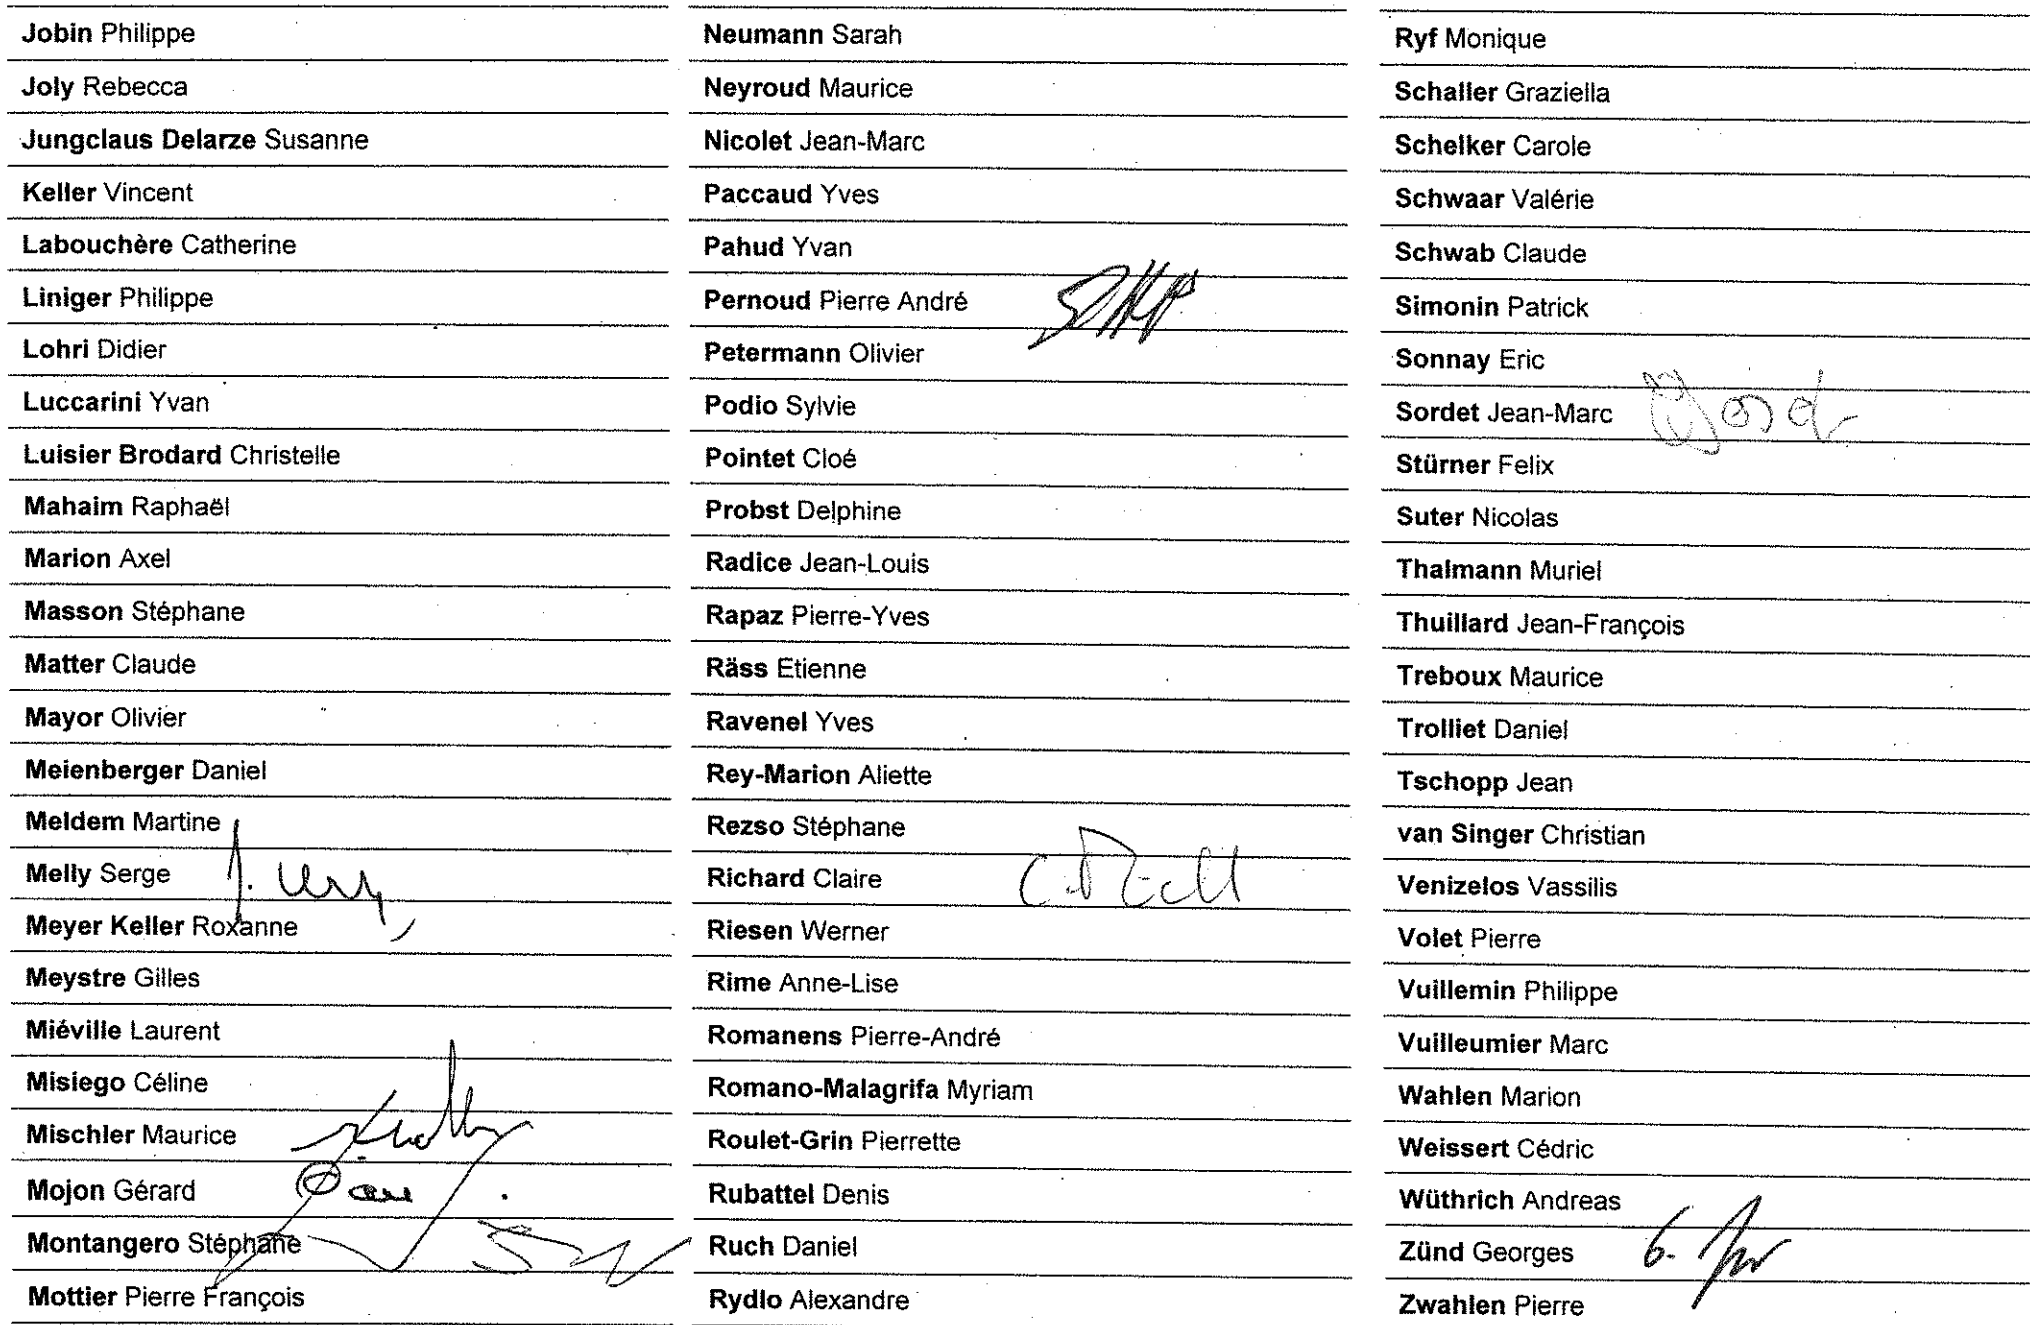 Jobin Philippe
Joly Rebecca
Jungclaus Delarze Susanne
Keller Vincent
Labouchère Catherine
Liniger Philippe
Lohri Didier
Luccarini Yvan
Luisier Brodard Christelle
Mahaim Raphaël
Marion Axel
Masson Stéphane
Matter Claude
Mayor Olivier
Meienberger Daniel
Meldem Martine
Melly Serge
Meyer Keller Roxanne
Meystre Gilles
Miéville Laurent
Misiego Céline
Mischler Maurice
Mojon Gérard
Montangero Stéphane
Mottier Pierre François
Neumann Sarah
Neyroud Maurice
Nicolet Jean-Marc
Paccaud Yves
Pahud Yvan
Pernoud Pierre André
Petermann Olivier
Podio Sylvie
Pointet Cloé
Probst Delphine
Radice Jean-Louis
Rapaz Pierre-Yves
Räss Etienne
Ravenel Yves
Rey-Marion Aliette
Rezso Stéphane
Richard Claire
Riesen Werner
Rime Anne-Lise
Romanens Pierre-André
Romano-Malagrifa Myriam
Roulet-Grin Pierrette
Rubattel Denis
Ruch Daniel
Rydlo Alexandre
Ryf Monique
Schaller Graziella
Schelker Carole
Schwaar Valérie
Schwab Claude
Simonin Patrick
Sonnay Eric
Sordet Jean-Marc
Stürner Felix
Suter Nicolas
Thalmann Muriel
Thuillard Jean-François
Treboux Maurice
Trolliet Daniel
Tschopp Jean
van Singer Christian
Venizelos Vassilis
Volet Pierre
Vuillemin Philippe
Vuilleumier Marc
Wahlen Marion
Weissert Cédric
Wüthrich Andreas
Zünd Georges
Zwahlen Pierre